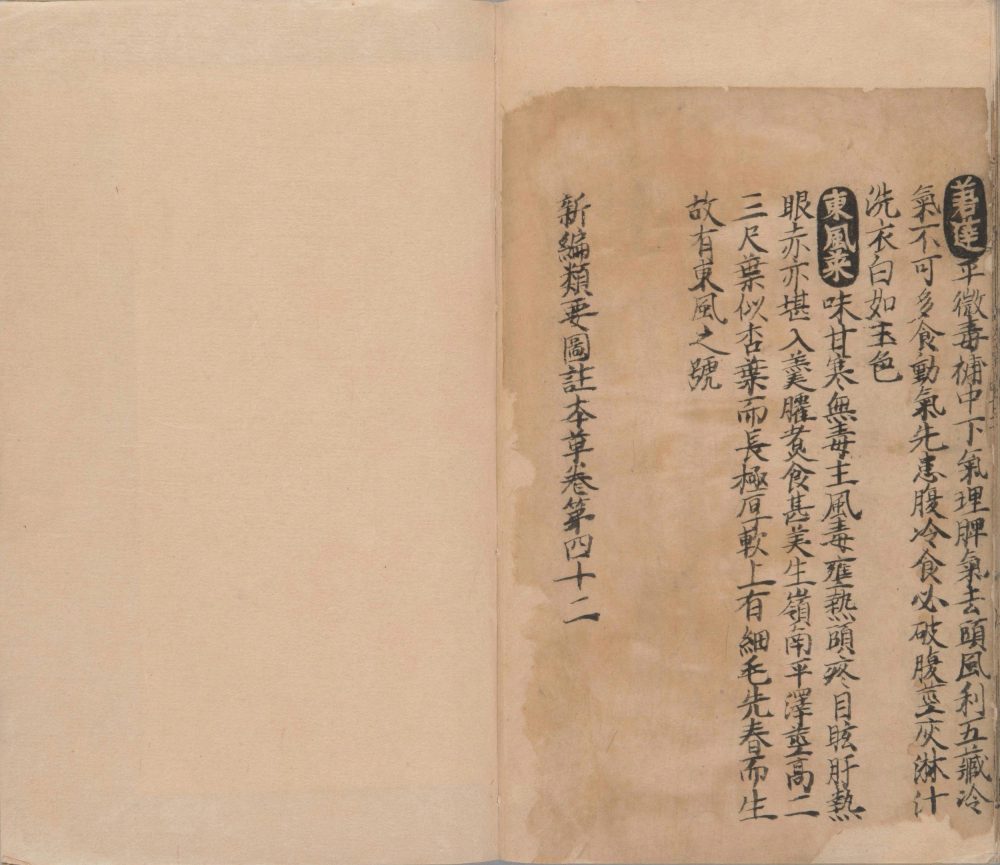 莙薘平微毒補中下氣理脾氣去頭風利五藏冷
氣不可多食動氣先患腹冷食必破腹莖灰淋汁
洗衣白如玉色
東風菜味甘寒無毒主風毒壅熱頭疼目眩肝熱
眼赤亦堪入羹臛煑食甚美生嶺南平澤莖高二
三尺葉似杏葉而長極厚軟上有細毛先春而生
故有東風之號
新編類要圖註本草卷第四十二